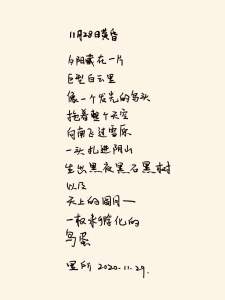 11月28日黄昏
夕阳藏在一片
巨型白云里
像一个发光的鸟头
拖着整个天空
向南飞过雪原
一头扎进阴山
生出黑夜黑石黑树
以及
天上的圆月——
一枚未孵化的
鸟蛋
2020.11.29.